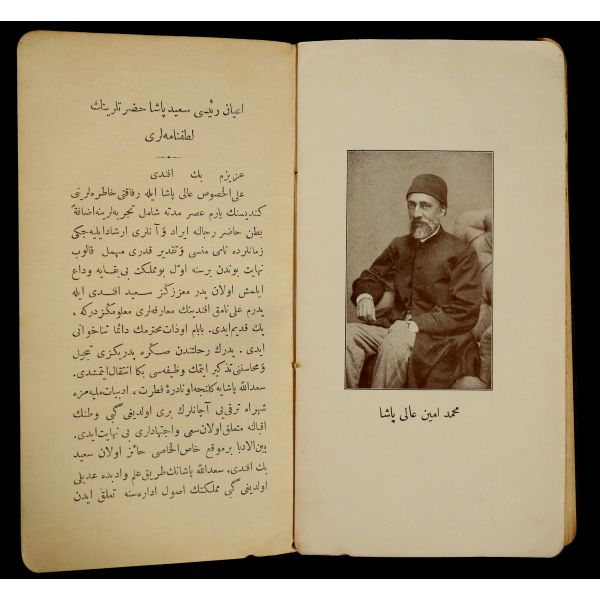 اعیان رئیسی سعید پاشا حضرتلرینك
لطفنامه‌لری
عزیزم بك افندی
علی الخصوص عالی پاشا ایله رفاقتی خاطره‌لرینی
كندیسنك یارم عصر مدته شامل تجربه‌لرینه اضافةً
بطن حاضر رجالنه ایراد و آنلری ارشاد ایلیه‌جكی
زمانلرده نامی منسی و تقدیر قدری مهمل قالوب
نهایت بوندن برسنه اوّل بو مملكت بی بقایه وداع
ایلمش اولان پدر معززكز سعید افندی ایله
پدرم علی نامق افندینك معارفه‌لری معلومكز دركه ،
پك قدیم ایدی. بابام اوذات محترمك دائما ثناخوانی
ایدی . پدرك رحلتندن صكره پدریكزی تبجیل
و محاسننی تذكیر ایتمك وظیفه‌سی بكا انتقال ایتمشدی.
سعدالله پاشایه كلنجه اونادرۀ فطرت ، ادبیات ملیه‌مزه
شهراه ترقی‌یی آچانلرك بری اولدیغی كبی وطنك
اقبالنه متعلق اولان سعی و اجتهادلری بی نهایت ایدی.
بین الادبا بر موقع خاص الخاصی حائز اولان سعید
بك افندی، سعدالله پاشانك طریق علم و ادبده عدیلی
اولدیغی كبی مملكتك اصول اداره‌سنه تعلق ایدن
محمد امین عالی پاشا